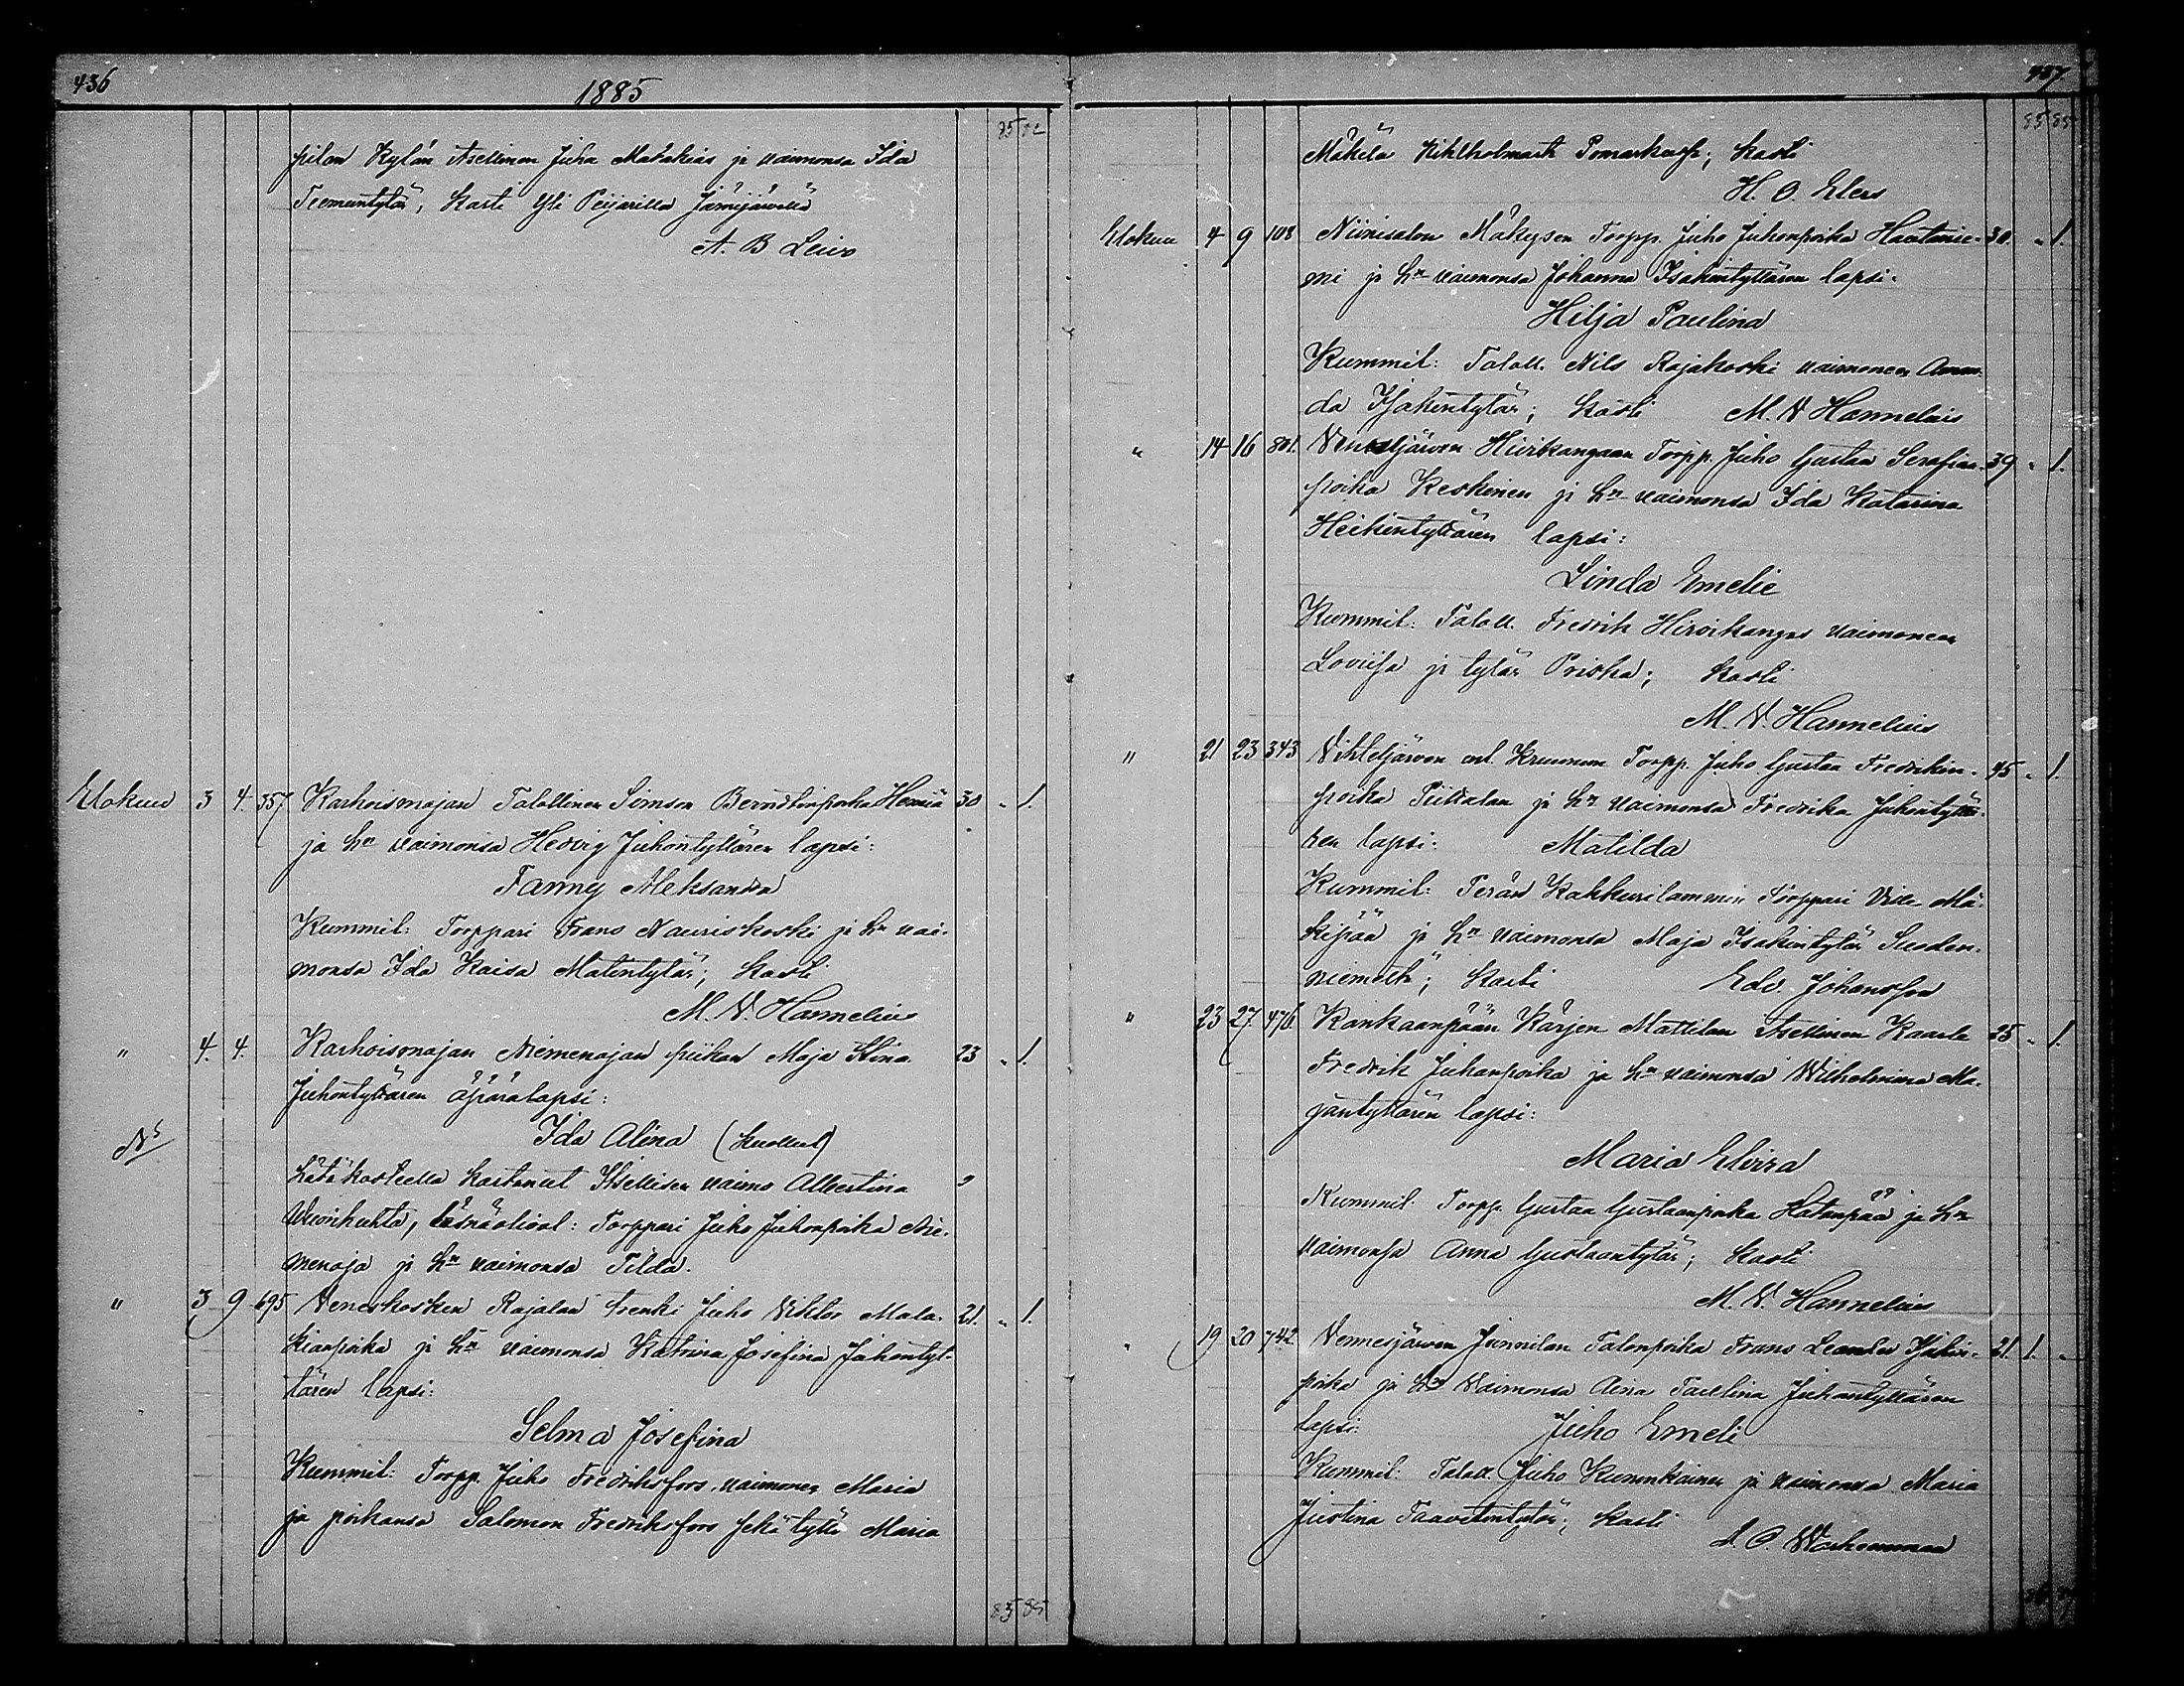 436
1885
85
pilan Kylän Itsellinen Juha Malakias ja vaimonsa Ida
Teemuntytär, Kasti Yli Peijarilla Jämijärvellä
A. B Leivo
Elokuu 3 4. 357 Karhoismajan Talollinen Simson Berndtinpoika Henriä 30 1.
ja hn vaimonsa Hedvig Juhontyttären lapsi:
Fanny Aleksandra
Kummit: Torppari Frans Nauriskoski ja hn vai-
monsa Ida Kaisa Matintytär; Kasti
M. V. Hannelius
" 4. 4. Karhoismajan Niemenojan piikan Maja Stina 23 " 1.
Juhontyttären äpärälapsi:
Ida Alina (kuollut)
Hätäkasteella kastanut Itsellisen vaimo Albertina
läsnäolivat: Torppari Juho Juhonpoika Nie-
menoja ja hn vaimonsa Tilda.
" 3 9 695 Veneskosken Rajalan trenki Juho Viktor Mala- 21. " 1.
kianpoika ja hn vaimonsa Katrina Josefina Juhontyt-
tären lapsi:
Selma Josefina
Kummit: Torpp. Juho Fredriksfors, vaimonen Maria
ja poikansa Salomon Fredriksfors sekä tyttö Maria
83 85
437
85 85
Mäkilä Pomarkusta; kasti
H. O. Elers
Elokuu 4 9 108 Niinisalon Mäkysen Torpp. Juho Juhonpoika Hautanie- 30. " 1.
mi ja hn vaimonsa Johanna Isakintyttären lapsi.
Hilja Paulina
Kummit: Taloll. Nils Rajakoski vaimonen Aman-
da Isakintytär; kasti M. V Hannelius
" 14 16 801. Venesjärven Hirvikangaan Torpp. Juho Gustaa Serafian- 39 " 1.
poika Keskinen ja hn vaimonsa Ida Katarina
Heikintyttären lapsi:
Linda Emelie
Kummit: Taloll. Fredrik Hirvikangas vaimonen
Loviisa ja tytär Priska; kasti
M. V. Hannelius
" 21 23 343 Vihteljärven Kruunun Torpp. Juho Gustaa Fredrikin- 45 " 1.
poika Piittalan ja hn vaimonsa Fredrika Juhontyttä-
ren lapsi: Matilda
Kummit: Perän Kakkurilammin Torppari Mä-
kipää ja hn vaimonsa Maja Isakintytär Suoden-
niemeltä; kasti Edv. Johansson
" 23 27. 476. Kankaanpään Kärjen Mattilan Itsellinen Kaarle 25 " 1.
Fredrik Juhanpoika ja hn vaimonsa Wilhelmina Ma-
jantyttären lapsi:
Maria Elvira
Kummit: Torpp. Gustaa Gustaanpoika Hatanpää ja hn
vaimonsa Anna Gustaantytär; kasti
M. V. Hannelius
" 19 20 742 Vennesjärven Junnilan Talonpoika Frans Leander Isakin- 21. 1. "
poika ja hn vaimonsa Aina Paulina Juhontyttären
lapsi: Juho Emeli
Kummit: Taloll. Juho Kuninkainen ja vaimonsa Maria
Justina Taavetintytär; kasti